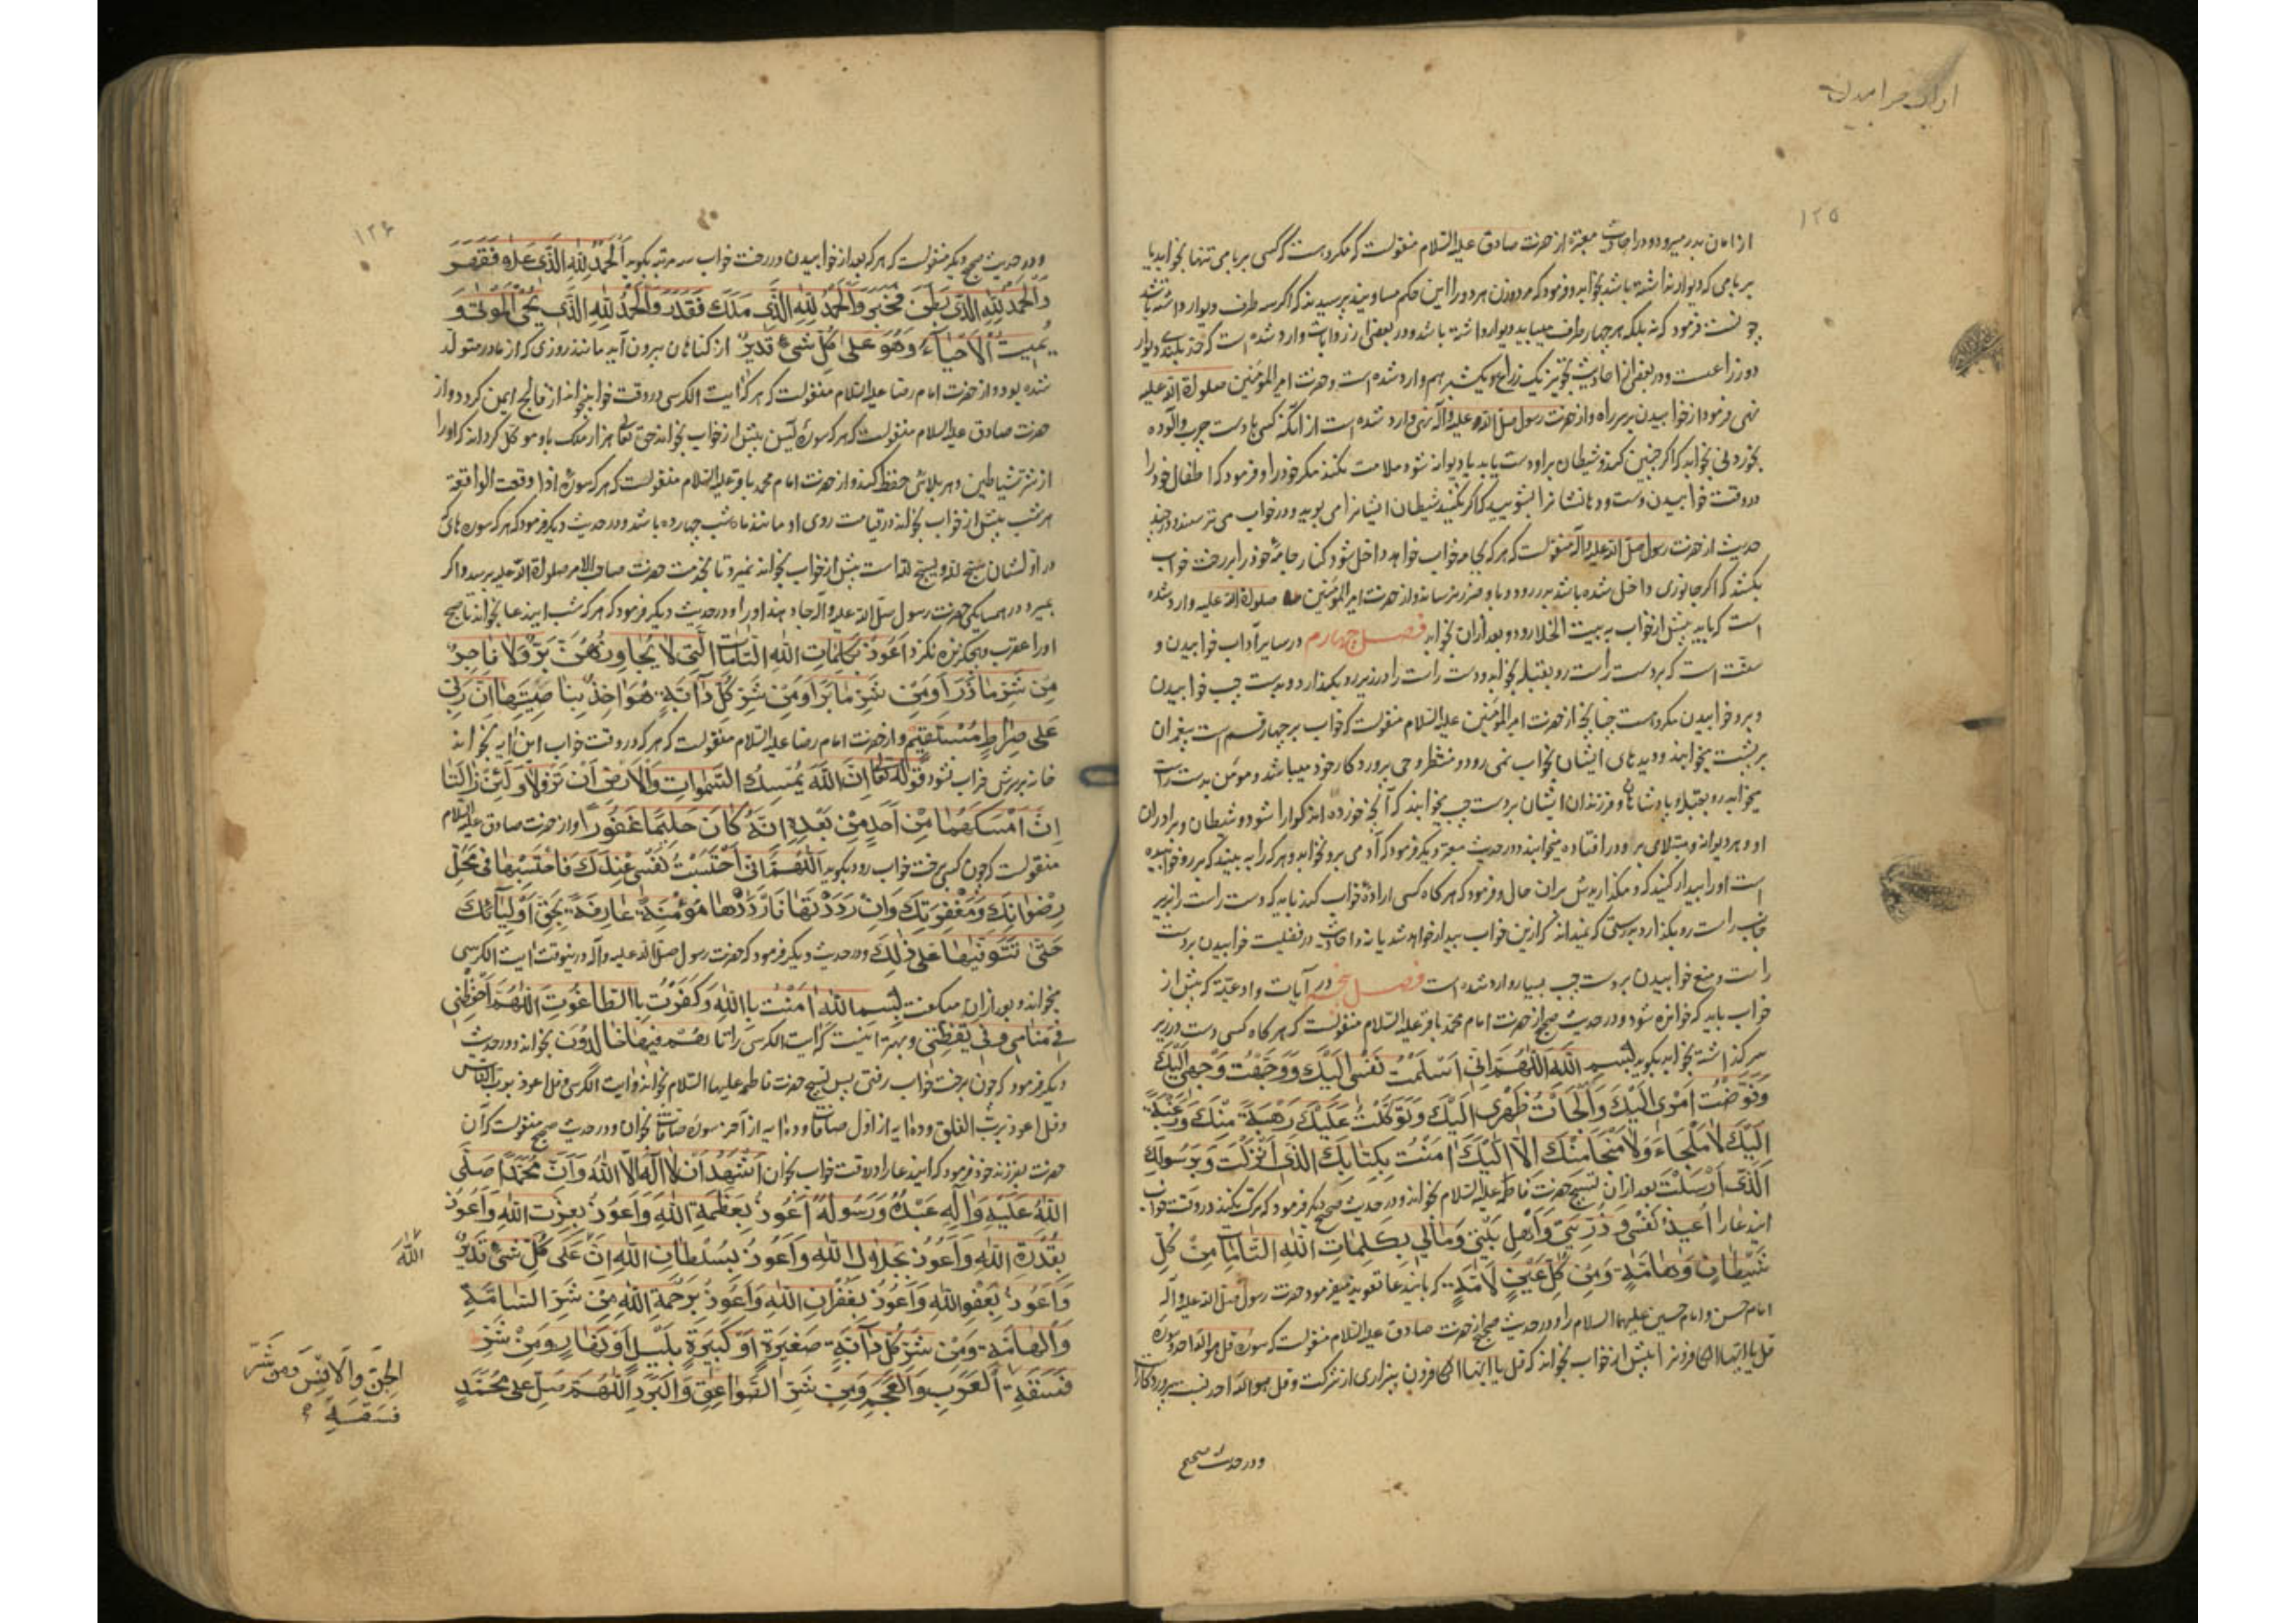 آداب خوابیدن
۱۲۵
از امان بدر میرود و در احادیث معتبره از حضرت صادق علیه السلام منقولست که مکروهست که کسی بر بامی تنها بخوابد یا
بر بامی که دیوار نداشته باشد بخوابد و فرمود که مرد و زن هر دو را این حکم مساویند پرسیدند که اگر سه طرف دیوار داشته باشد
چونست فرمود که نه بلکه هر چهار طرف میباید دیوار داشته باشد و در بعضی از روایات وارد شده است که حد بلندی دیوار
دو زراعست و در بعضی از احادیث تجویز یک زراع و یکشبر هم وارد شده است و حضرت امیر المؤمنین صلوة الله علیه
نهی فرمود از خوابیدن بر سر راه و از حضرت رسول صلی الله علیه وآله نهی وارد شده است از آنکه کسی با دست چرب و آلوده
بخوردنی بخوابد که اگر چنین کند و شیطان بر او دست یابد یا دیوانه شود ملامت نکند مگر خود را و فرمود که اطفال خود را
در وقت خوابیدن دست و دهانشانرا بشویید که اگر نکنید شیطان ایشانرا می بوید و در خواب می ترسند و در چند
حدیث از حضرت رسول صلی الله علیه وآله منقولست که هر که بجامه خواب خواهد داخل شود کنار جامهٔ خود را بر رخت خواب
بکشد که اگر جانوری داخل شده باشد بدر رود و باو ضرر نرساند و از حضرت امیر المؤمنین صلوة الله علیه وارد شده
است که باید پیش از خواب به بیت الخلا رود و بعد از آن بخوابد فصل چهارم در سایر آداب خوابیدن و
سنّت است که بر دست راست رو بقبله بخوابد و دست راست را در زیر رو بگذارد و بدست چپ خوابیدن
و برو خوابیدن مکروهست چنانچه از حضرت امیر المؤمنین علیه السلام منقولست که خواب بر چهار قسم است پیغمبران
بر پشت بخوابند و دیدهای ایشان بخواب نمی رود و منتظر وحی پروردگار خود میباشد و مؤمن بدست راست
میخوابد رو بقبله و پادشاهان و فرزندان ایشان بر دست چپ میخوابند که آنچه خورده اند گوارا شود و شیطان و برادران
او و هر دیوانه و مبتلامی بر او در افتاده میخوابند و در حدیث معتبر دیگر فرمود که آدمی برو نخوابد و هر که را به بینید که برو خوابیده
است او را بیدار کنید که و مگذاریدش بران حال و فرمود که هر گاه کسی ارادهٔ خواب کند باید که دست راست را زیر
جانب راست رو بگذارد بدرستی که نمیداند که ازین خواب بیدار خواهد شد یا نه و احادیث در فضیلت خوابیدن بر دست
راست و منع خوابیدن بر دست چپ بسیار وارد شده است فصل پنجم در آیات و ادعیّه که پیش از
خواب باید که خوانده شود و در حدیث صحیح از حضرت امام محمد باقر علیه السلام منقولست که هر گاه کسی دست در زیر
سر گذاشته بخوابد بگوید بِسْمِ اللّهِ اَللّهُمَّ اِنّی اَسْلَمْتُ نَفْسی اِلَیْکَ وَوَجَّهْتُ وَجْهی اِلَیْکَ
وَفَوَّضْتُ اَمْری اِلَیْکَ وَاَلْجَأْتُ ظَهْری اِلَیْکَ وَتَوَکَّلْتُ عَلَیْکَ رَهْبَةً مِنْکَ وَرَغْبَةً
اِلَیْکَ لا مَلْجَاءَ وَلا مَنْجا مِنْکَ اِلّا اِلَیْکَ امَنْتُ بِکِتابِکَ الَّذی اَنْزَلْتَ وَبِرَسُولِکَ
الَّذی اَرْسَلْتَ بعد از آن تسبیح حضرت فاطمه علیه السلام بخواند و در حدیث صحیح دیگر فرمود که ترک نکنید در وقت خواب
ایندعا را اُعیذُ نَفْسی وَ ذُرِّیَتی وَاَهْلِ بَیْتی وَمالی بِکَلِماتِ اللّهِ التّاماتِ مِنْ کُلِّ
شَیْطانٍ وَهامَّةٍ وَمِنْ کُلِّ عَیْنٍ لامَّةٍ که بایندعا تعویذ میفرمود حضرت رسول صلی الله علیه وآله
امام حسن و امام حسین علیهما السلام را و در حدیث صحیح از حضرت صادق علیه السلام منقولست که سورهٔ قل هو الله احد و سورهٔ
قل یا ایها الکافرون را پیش از خواب بخواند که قل یا ایها الکافرون بیزاری از شرکت و قل هو الله احد نسب پروردگار است
و در حدیث صحیح
۱۲۶
و در حدیث صحیح دیگر منقولست که هر که بعد از خوابیدن در رخت خواب سه مرتبه بگوید اَلْحَمْدُ لِلّهِ الَّذی عَلا فَقَهَرَ
وَالْحَمْدُ لِلّهِ الَّذی بَطَنَ فَخَبَرَ وَالْحَمْدُ لِلّهِ الَّذی مَلَکَ فَقَدَرَ وَالْحَمْدُ لِلّهِ الَّذی یُحْیِ الْمَوْتی وَ
یُمیتُ الْاَحْیاءَ وَهُوَ عَلی کُلِّ شَیْءٍ قَدیرٌ از گناهان بیرون آید مانند روزی که از مادر متولد
شده بود و از حضرت امام رضا علیه السلام منقولست که هر که آیت الکرسی در وقت خواب بخواند از فالج ایمن گردد و از
حضرت صادق علیه السلام منقولست که هر که سورهٔ یس پیش از خواب بخواند حق تعالی هزار ملک باو موکل گرداند که او را
از شر شیاطین و هر بلائی حفظ کنند و از حضرت امام محمد باقر علیه السلام منقولست که هر که سورهٔ اذا وقعت الواقعة
هر شب پیش از خواب بخواند در قیامت روی او مانند ماه شب چهارده باشد و در حدیث دیگر فرمود که هر که سوره های
در اولشان سبح لله و یسبح لله است پیش از خواب بخواند نمیرد تا بخدمت حضرت صاحب الامر صلوة الله علیه برسد و اگر
بمیرد در همسایگی حضرت رسول صلی الله علیه وآله جا دهند او را و در حدیث دیگر فرمود که هر که شب ایندعا بخواند تا صبح
او را عقرب و هیچ گزنده نگزد اَعُوذُ بِکَلِماتِ اللّهِ التّاماتِ الَّتی لا یُجاوِزُهُنَّ بَرٌّ وَلا فاجِرٌ
مِنْ شَرِّ ما ذَرَاَ وَمِنْ شَرِّ ما بَرَاَ وَمِنْ شَرِّ کُلِّ دابَّةٍ هُوَ اخِذٌ بِناصِیَتِها اِنَّ رَبّی
عَلی صِراطٍ مُسْتَقیمٍ و از حضرت امام رضا علیه السلام منقولست که هر که در وقت خواب این آیه بخواند
خانه بر سرش خراب نشود قوله تعا اِنَّ اللّهَ یُمْسِکُ السَّمواتِ وَالْاَرْضَ اَنْ تَزُولا وَلَئِنْ زالَتا
اِنْ اَمْسَکَهُما مِنْ اَحَدٍ مِنْ بَعْدِهِ اِنَّهُ کانَ حَلیماً غَفُوراً و از حضرت صادق علیه السلام
منقولست که چون کسی برخت خواب رود بگوید اَللّهُمَّ اِنّی اَحْتَسِبْتُ نَفْسی عِنْدَکَ فَاحْتَسِبْها فی مَحَلِّ
رِضْوانِکَ وَمَغْفِرَتِکَ وَاِنْ رَدَدْتَها فَارْدُدْها مُؤْمِنَةً عارِفَةً بِحَقِّ اَوْلِیائِکَ
حَتّی تَتَوَفّیها عَلی ذلِکَ و در حدیث دیگر فرمود که حضرت رسول صلی الله علیه وآله درینوقت آیت الکرسی
میخواند و بعد از آن میگفت بِسْمِ اللّهِ امَنْتُ بِاللّهِ وَکَفَرْتُ بِالطّاغُوتِ اَللّهُمَّ احْفَظْنی
فی مَنامی وَفی یَقْظَتی و بهتر اینست که آیت الکرسی را تا هُمْ فیها خالِدُونَ بخواند و در حدیث
دیگر فرمود که چون برخت خواب رفتی پس تسبیح حضرت فاطمه علیها السلام بخوان و آیت الکرسی و قل اعوذ برب الناس
و قل اعوذ برب الفلق و ده آیه از اول صافات و ده آیه از آخر سورهٔ صافات بخوان و در حدیث صحیح منقولست که آن
حضرت بفرزند خود فرمود که ایندعا را در وقت خواب بخوان اَشْهَدُ اَنْ لا اِلهَ اِلَّا اللّهُ وَاَنَّ مُحَمَّداً صَلَّی
اللّهُ عَلَیْهِ وَالِهِ عَبْدُهُ وَرَسُولُهُ اَعُوذُ بِعَظَمَةِ اللّهِ وَاَعُوذُ بِعِزَّتِ اللّهِ وَاَعُوذُ
بِقُدْرَةِ اللّهِ وَاَعُوذُ بِجَلالِ اللّهِ وَاَعُوذُ بِسُلْطانِ اللّهِ اِنَّ عَلی کُلِّ شَیْءٍ قَدیرٌ
اللّهَ
وَاَعُوذُ بِعَفْوِ اللّهِ وَاَعُوذُ بِغُفْرانِ اللّهِ وَاَعُوذُ بِرَحْمَةِ اللّهِ مِنْ شَرِّ السّامَّةِ
وَالْهامَّةِ وَمِنْ شَرِّ کُلِّ دابَّةٍ صَغیرَةٍ اَوْ کَبیرَةٍ بِلَیْلٍ اَوْ نَهارٍ وَمِنْ شَرِّ
فَسَقَةِ الْعَرَبِ وَالْعَجَمِ وَمِنْ شَرِّ الصَّواعِقِ وَالْبَرَدِ اَللّهُمَّ صَلِّ عَلی مُحَمَّدٍ
الْجِنِّ وَالْاِنْسِ وَمِنْ شَرِّ
فَسَقَةِ